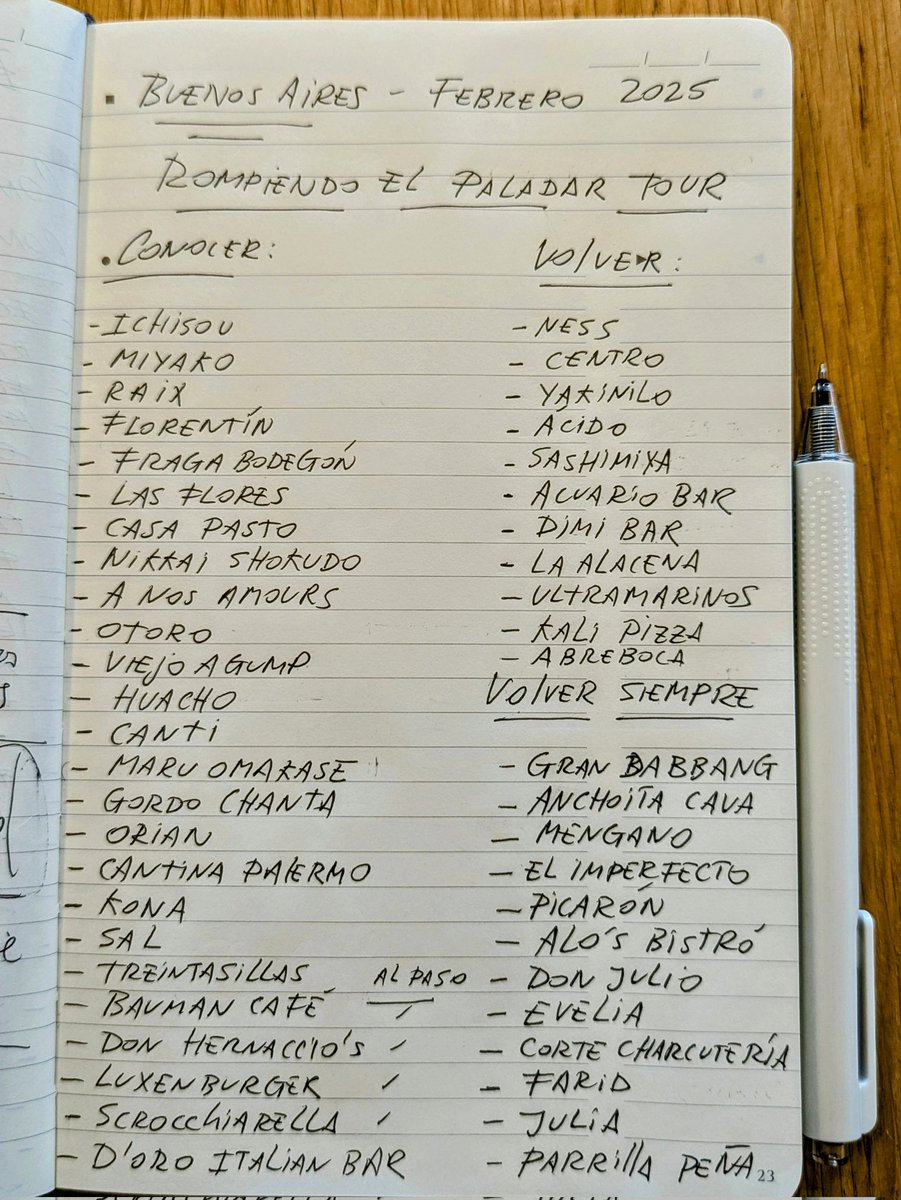 ▪ BUENOS AIRES - FEBRERO 2025
ROMPIENDO EL PALADAR TOUR
• CONOCER:
- ICHISOU
- MIYAKO
- RAIX
- FLORENTÍN
- FRAGA BODEGÓN
- LAS FLORES
- CASA PASTO
- NIKKAI SHOKUDO
- A NOS AMOURS
- OTORO
- VIEJO AGUMP
- HUACHO
- CANTI
- MARU OMAKASE
- GORDO CHANTA
- ORIAN
- CANTINA PALERMO
- KONA
- SAL
- TREINTASILLAS
AL PASO
- BAUMAN CAFÉ
- DON HERNACCIO'S
- LUXENBURGER
- SCROCCHIARELLA
- D'ORO ITALIAN BAR
VOLVER:
- NESS
- CENTRO
- YAKINILO
- ÁCIDO
- SASHIMIYA
- ACUARIO BAR
- DIMI BAR
- LA ALACENA
- ULTRAMARINOS
- KALI PIZZA
- ABREBOCA
VOLVER SIEMPRE
- GRAN DABBANG
- ANCHOITA CAVA
- MENGANO
- EL IMPERFECTO
- PICARÓN
- ALO'S BISTRÓ
- DON JULIO
- EVELIA
- CORTE CHARCUTERÍA
- FARID
- JULIA
- PARRILLA PEÑA
23